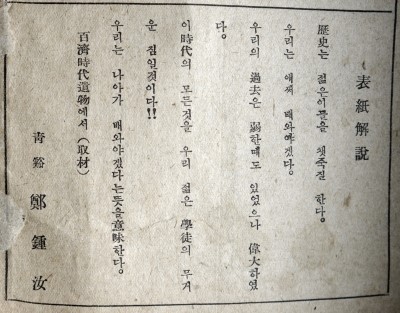 表紙解説
歷史는 젊은이들을 챗죽질 한다.
우리는 애써 배와야겠다.
우리의 過去은 弱한때도 있었으나 偉大하였
다.
이時代의 모든것을 우리 젊은 學徒의 무거
운 짐일것이다!!
우리는 나아가 배와야겠다는뜻을意味한다.
百濟時代遺物에서 (取材)
靑谿 鄭鍾汝